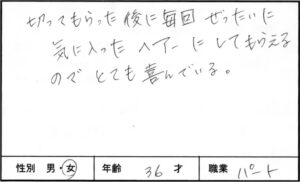 切ってもらった後に毎回 ぜったいに
気に入ったヘアーにしてもらえる
のでとても喜んでいる。
性別 男・女 年齢 36 才 職業 パート